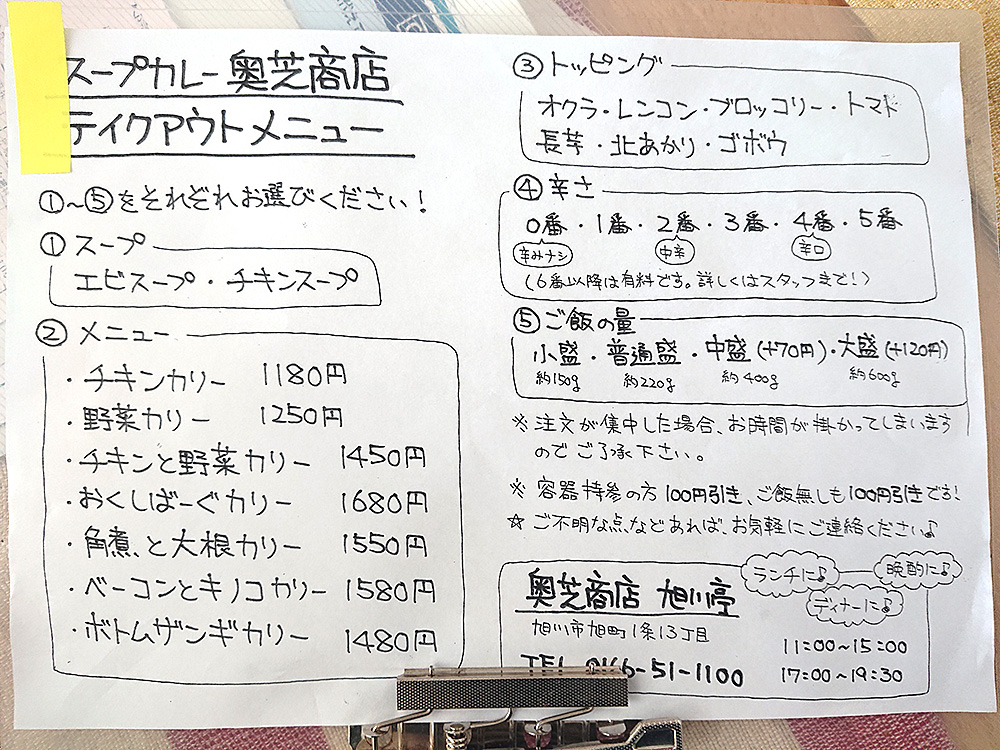 スープカレー 奥芝商店
テイクアウトメニュー
①~⑤をそれぞれお選びください!
① スープ
エビスープ・チキンスープ
② メニュー
・チキンカリー 1180円
・野菜カリー 1250円
・チキンと野菜カリー 1450円
・おくしばーぐカリー 1680円
・角煮と大根カリー 1550円
・ベーコンとキノコカリー 1580円
・ボトムザンギカリー 1480円
③ トッピング
オクラ・レンコン・ブロッコリー・トマト
長芋・北あかり・ゴボウ
④ 辛さ
0番・1番・2番・3番・4番・5番
辛みナシ 中辛 辛口
(6番以降は有料です。詳しくはスタッフまで!)
⑤ ご飯の量
小盛・普通盛・中盛(+70円)・大盛(+120円)
約150g 約220g 約400g 約600g
※ 注文が集中した場合、お時間が掛かってしまいます
のでご了承下さい。
※ 容器持参の方100円引き、ご飯無しも100円引きです!
☆ ご不明な点などあれば、お気軽にご連絡ください♪
ランチに♪ 晩酌に♪
ディナーに♪
奥芝商店 旭川亭
旭川市旭町1条13丁目
11:00~15:00
TEL 0166-51-1100
17:00~19:30